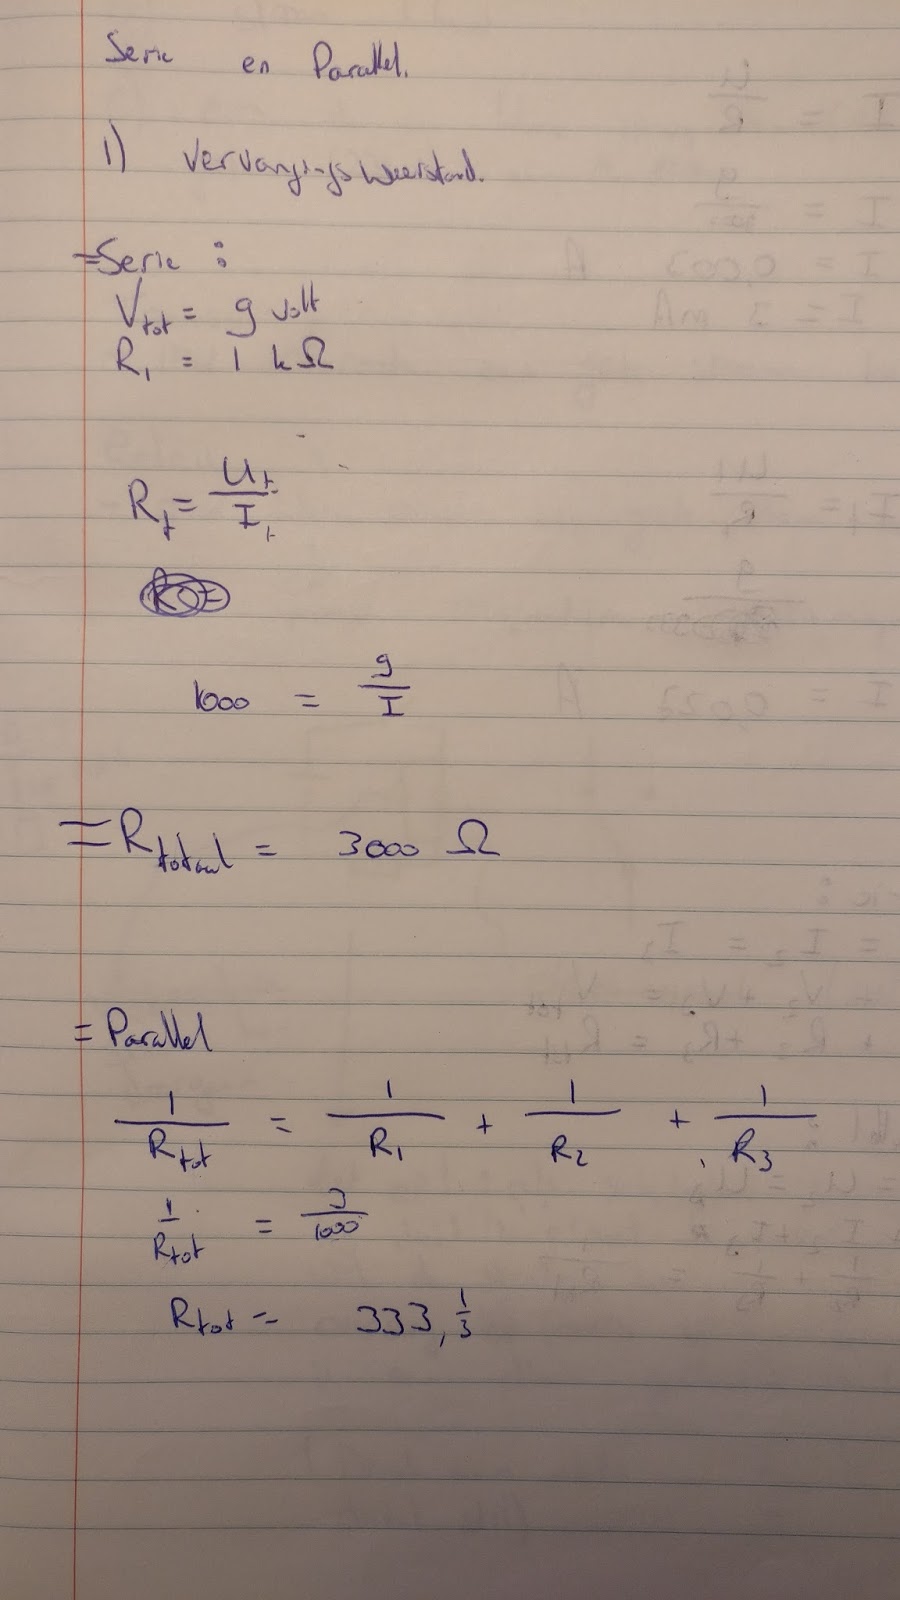 Serie en Parallel.
1) Vervangingsweerstand.
= Serie :
V_tot = 9 volt
R_1 = 1 kΩ
R_t = U_t / I_t
1000 = 9 / I
= R_totaal = 3000 Ω
= Parallel
1 / R_tot = 1 / R_1 + 1 / R_2 + 1 / R_3
1 / R_tot = 3 / 1000
R_tot = 333, 1/3